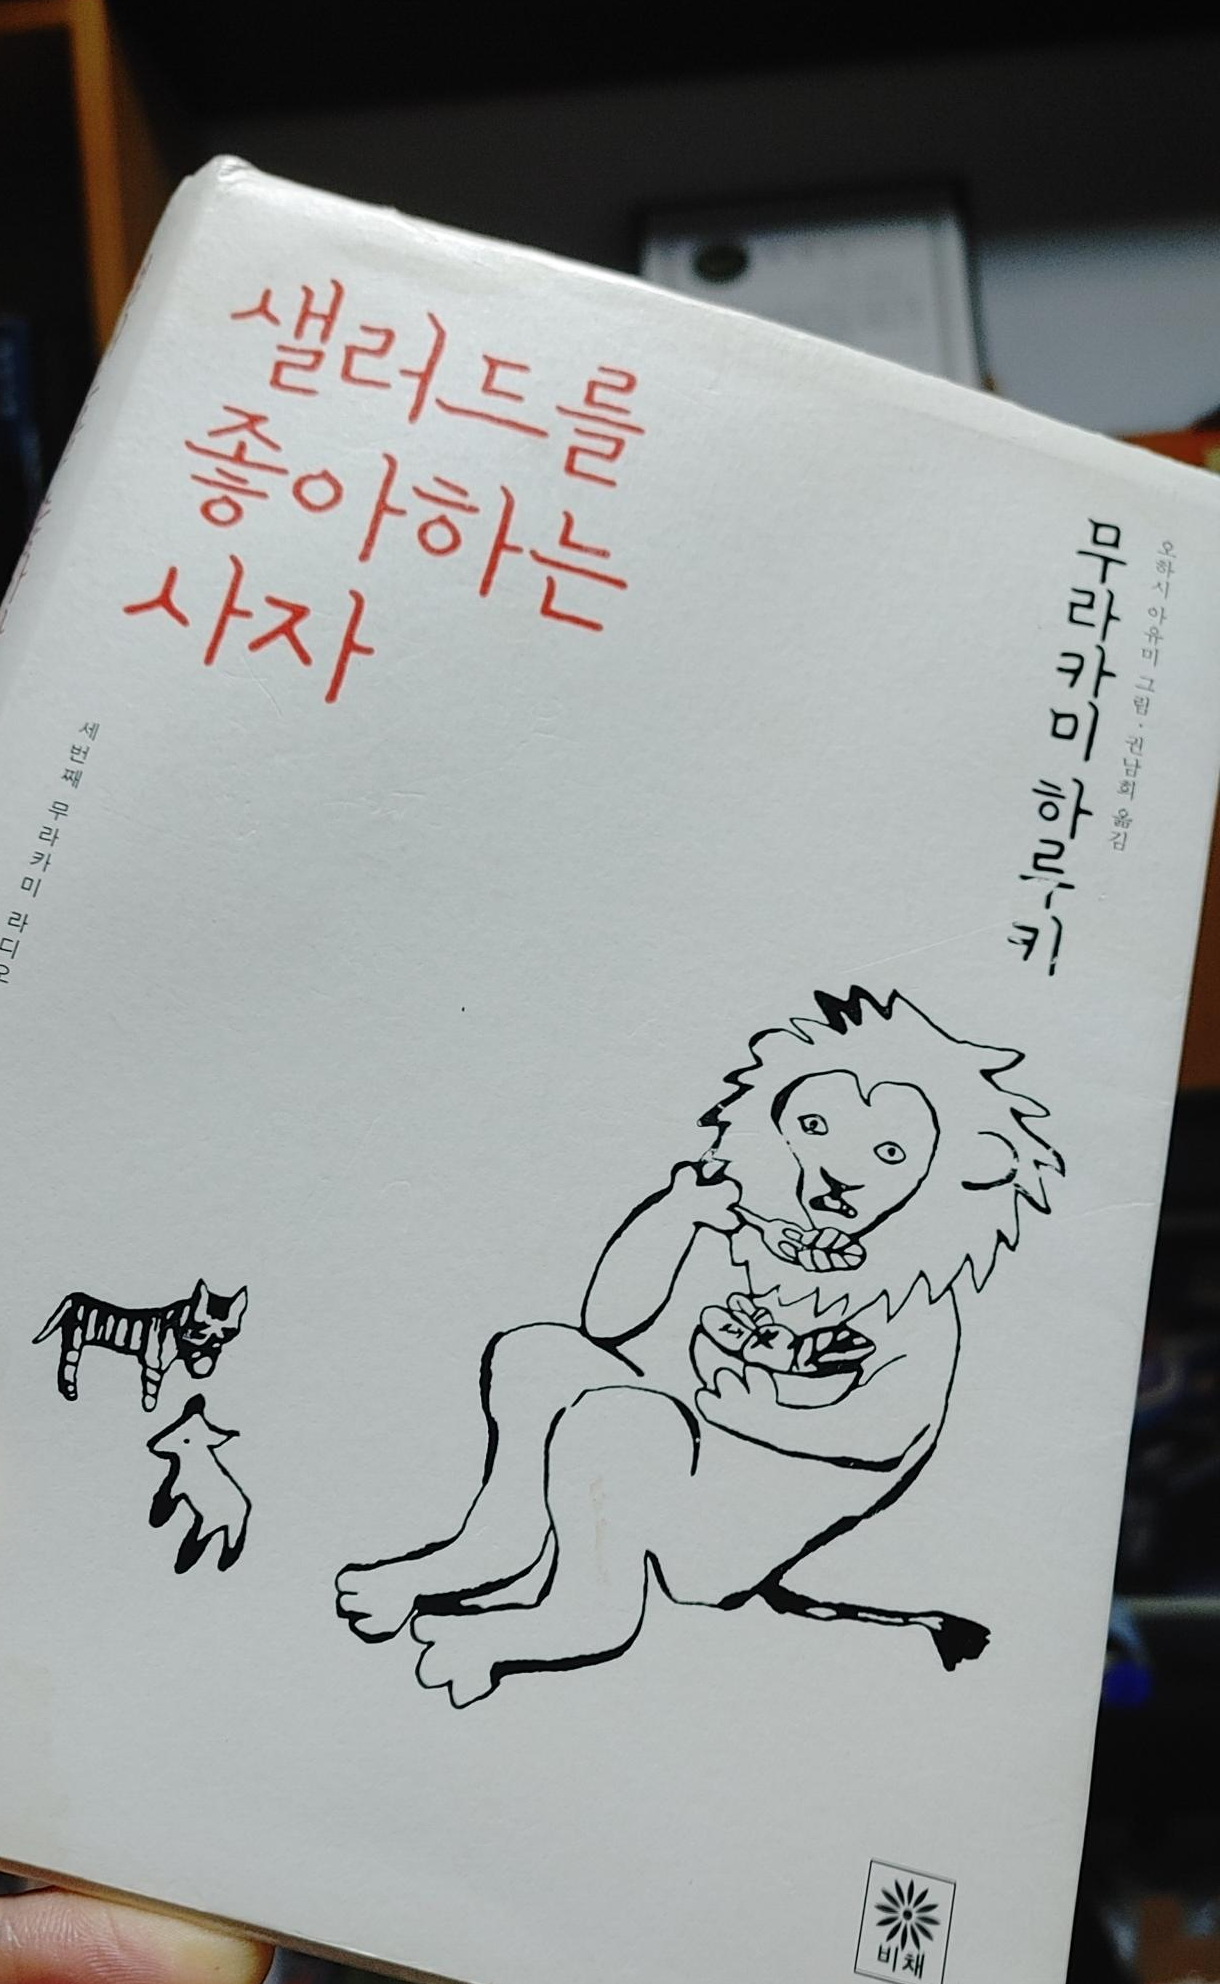 샐러드를
좋아하는
사자
세번째 무라카미 라디오
무라카미 하루키
오하시 아유미 그림·권남희 옮김
비채